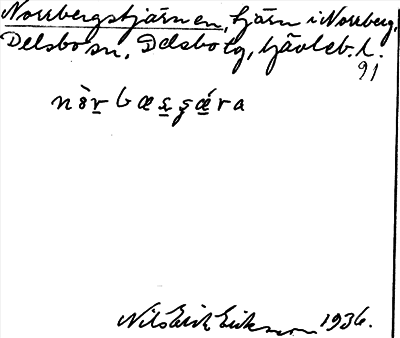 Norrbergstjärnen, tjärn i Norrberg,
Delsbo sn, Delsbo tg, Gävleb. l.
91
Nils Erik Eriksson 1936.